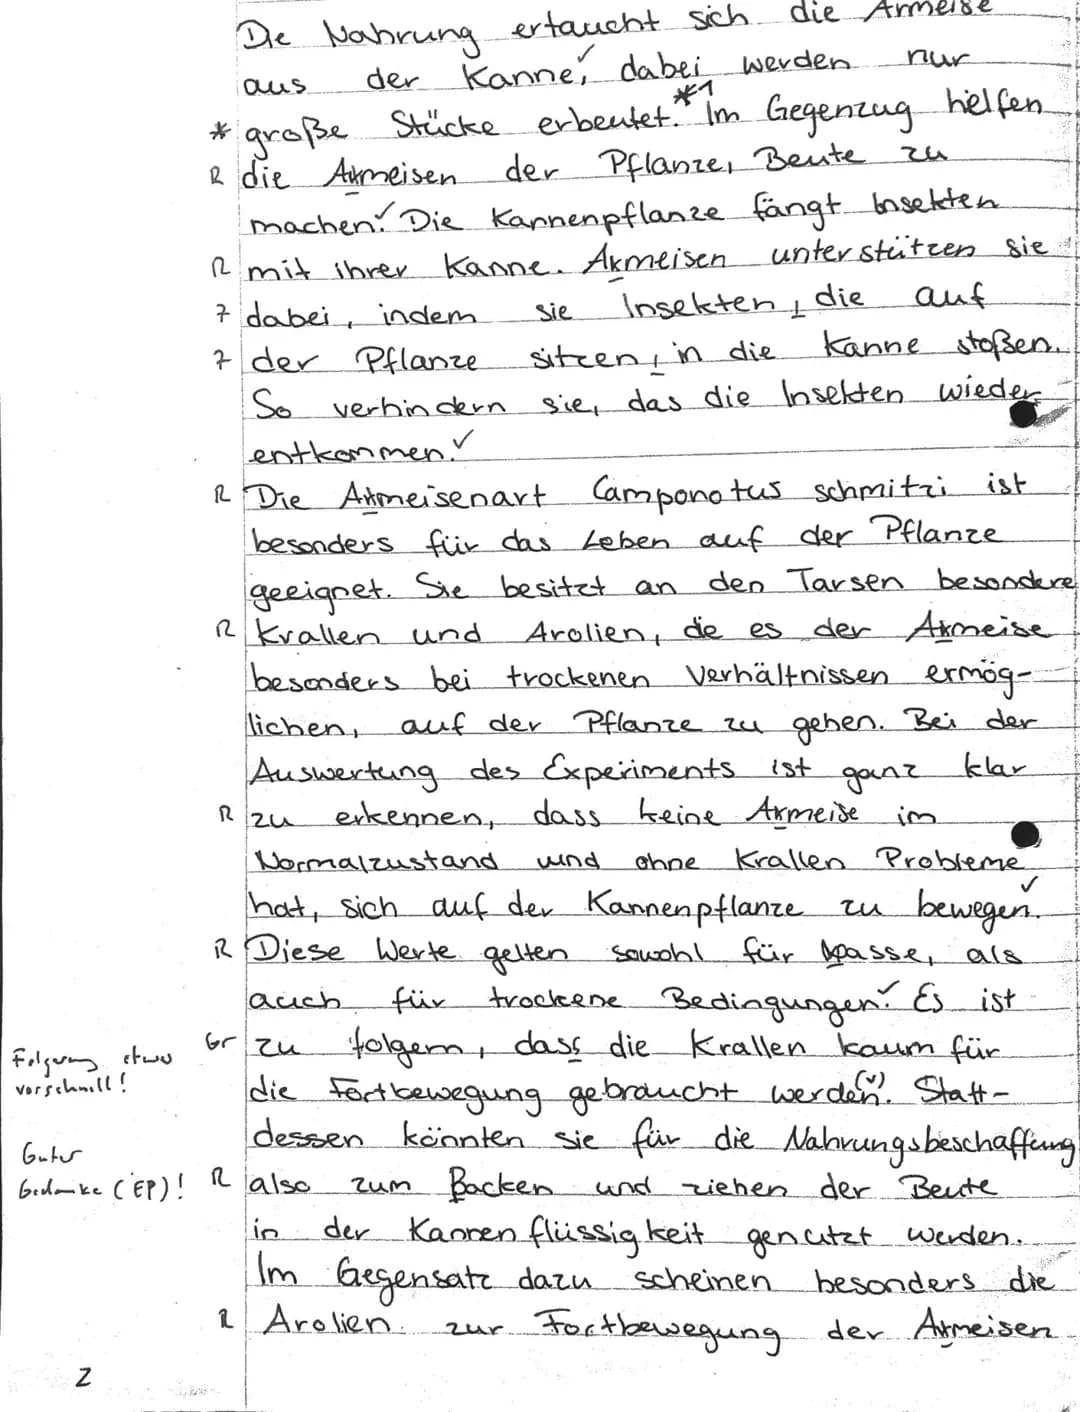 Die Nahrung ertaucht sich die Armeise
aus der Kanne, dabei werden nur
* große Stücke erbeutet. *1 Im Gegenzug helfen
R die Armeisen der Pflanze, Beute zu
machen. Die Kannenpflanze fängt Insekten
R mit ihrer Kanne. Armeisen unterstützen sie
7 dabei, indem sie Insekten, die auf
7 der Pflanze sitzen, in die Kanne stoßen.
So verhindern sie, das die Insekten wieder
entkommen. ✓
R Die Armeisenart Camponotus schmitzi ist
besonders für das Leben auf der Pflanze
geeignet. Sie besitzt an den Tarsen besondere
R Krallen und Arolien, die es der Armeise
besonders bei trockenen Verhältnissen ermög-
lichen, auf der Pflanze zu gehen. Bei der
Auswertung des Experiments ist ganz klar
R zu erkennen, dass keine Armeise im
Normalzustand und ohne Krallen Probleme
hat, sich auf der Kannenpflanze zu bewegen. ✓
R Diese Werte gelten sowohl für nasse, als
auch für trockene Bedingungen. ✓ Es ist
Folgerung etwas Gr zu folgern, dass die Krallen kaum für
vorschnell! die Fortbewegung gebraucht werden. (✓) Statt-
dessen könnten sie für die Nahrungsbeschaffung
Guter
Gedanke (EP)! R also zum Packen und ziehen der Beute
in der Kannenflüssigkeit genutzt werden.
Im Gegensatz dazu scheinen besonders die
R Arolien zur Fortbewegung der Armeisen
2